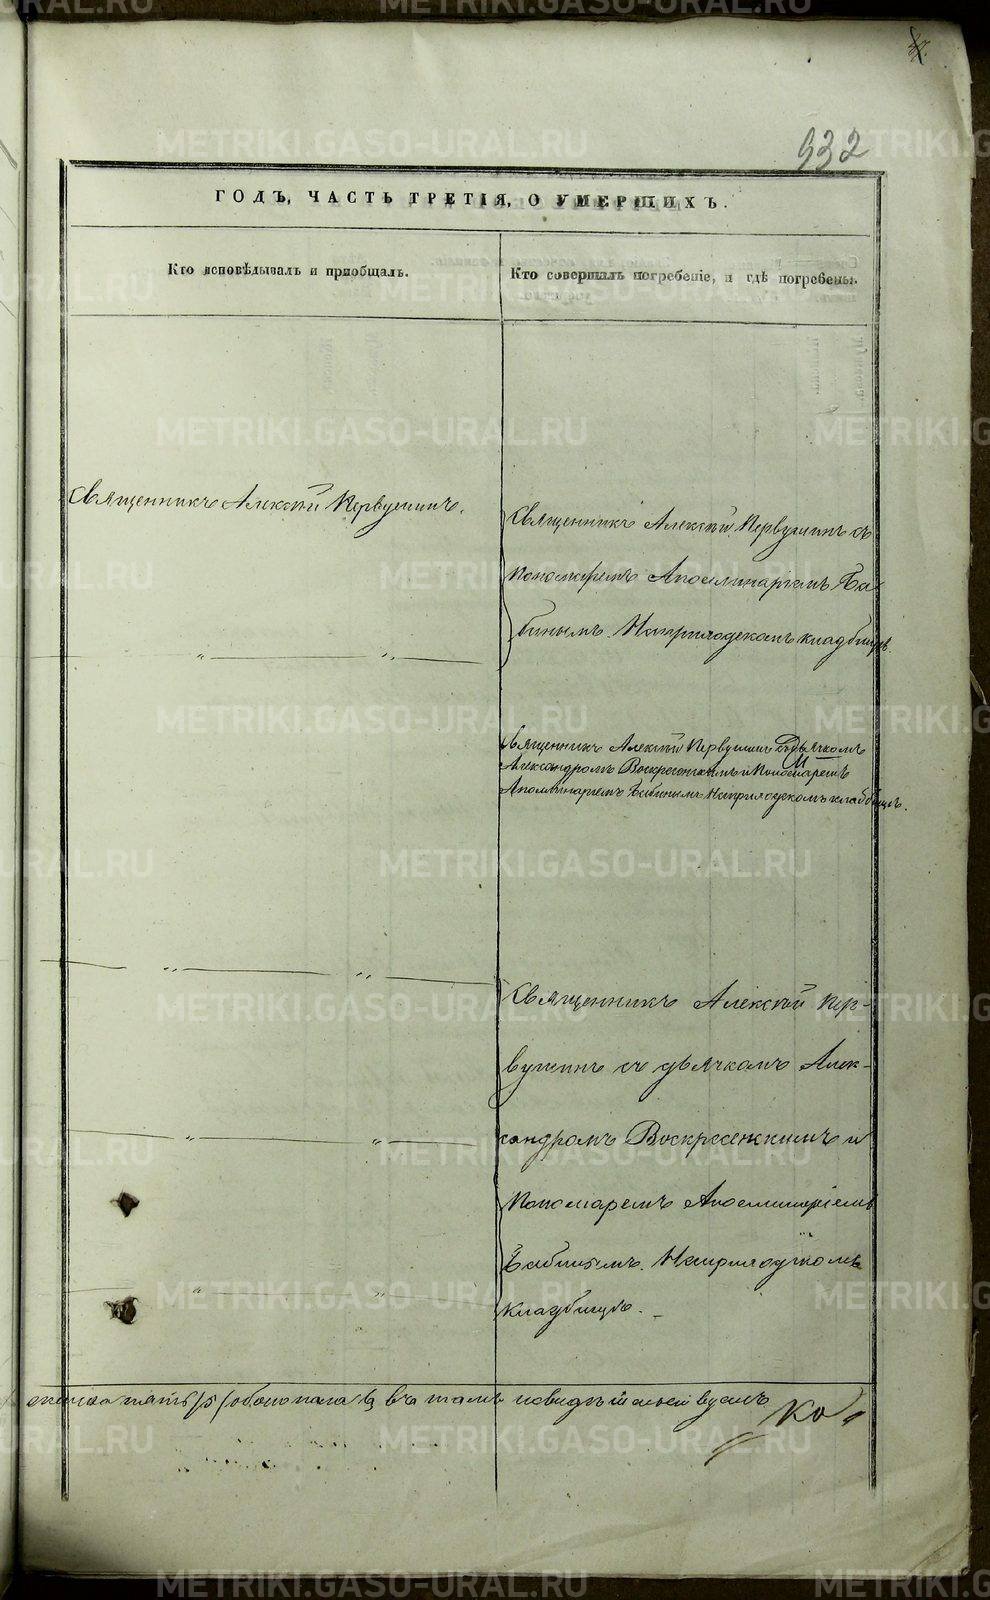 932
ГОДЪ, ЧАСТЬ ТРЕТІЯ, О УМЕРШИХЪ.
Кто исповѣдывалъ и пріобщалъ.
Кто совершилъ погребеніе, и гдѣ погребены.
Священникъ Алексѣй Первушинъ.
Священникъ Алексѣй Первушинъ съ
Пономаремъ Аполлинаріемъ Ба-
бинымъ. На приходскомъ кладбищѣ.
Священникъ Алексѣй Первушинъ съ дьячкомъ
Александромъ Воскресенскимъ и Пономаремъ
Аполлинаріемъ Бабинымъ На приходскомъ кладбищѣ.
Священникъ Алексѣй Пер-
вушинъ съ дьячкомъ Алек-
сандромъ Воскресенскимъ и
Пономаремъ Аполлинаріемъ
Бабинымъ. На приходскомъ
кладбищѣ.
женска пять /5/ обоего пола
METRIKI.GASO-URAL.RU